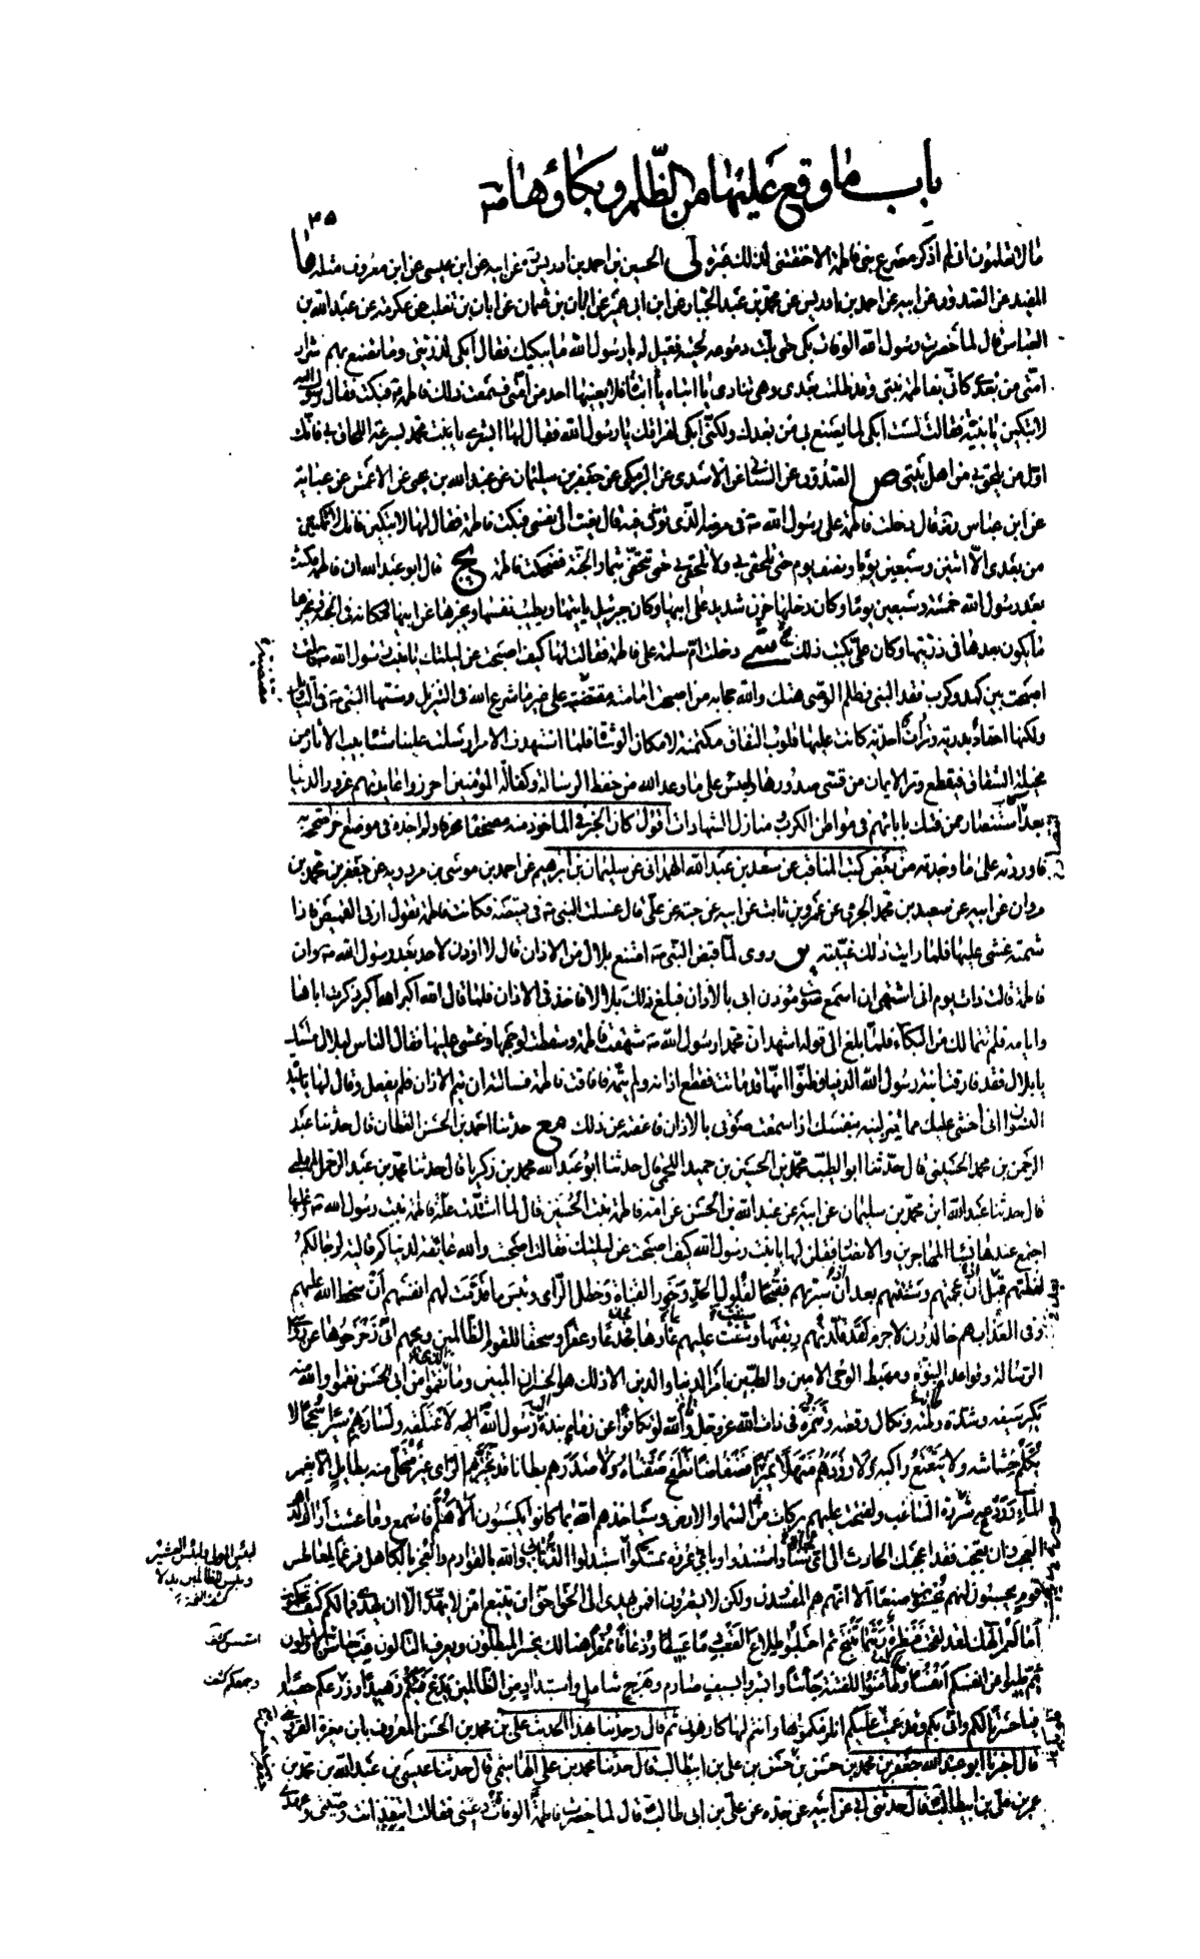 باب ما وقع عليها من الظلم وبكاؤها منه
٤٥
قال تعلمون انى لم اذكر مصرع بنى فاطمة الا خنقتنى لذلك عبرة لى الحسين بن احمد بن ادريس عن ابيه عن ابن عيسى عن ابن معروف مثله ما
المفيد عن الصدوق عن ابيه عن احمد بن ادريس عن محمد بن عبد الجبار عن ابن ابى عمير عن ابان بن عثمان عن ابان بن تغلب عن عكرمة عن عبد الله بن
العباس قال لما حضرت رسول الله الوفاة بكى حتى بلت دموعه لحيته فقيل له يا رسول الله ما يبكيك فقال ابكى لذريتى وما تصنع بهم شرار
امتى من بعدى كانى بفاطمة بنتى وقد ظلمت بعدى وهى تنادى يا ابتاه يا ابتاه فلا يعينها احد من امتى فسمعت ذلك فاطمة فبكت فقال رسول الله
لا تبكين يا بنية فقالت لست ابكى لما يصنع بى من بعدك ولكنى ابكى لفراقك يا رسول الله فقال لها ابشرى يا بنت محمد بسرعة اللحاق بى فانك
اول من يلحق بى من اهل بيتى ص الصدوق عن السنانى عن الاسدى عن البرمكى عن جعفر بن سليمان عن عبد الله بن يحيى عن الاعمش عن عباية
عن ابن عباس قال دخلت فاطمة على رسول الله فى مرضه الذى توفى فيه قال نعيت الى نفسى فبكت فاطمة فقال لها لا تبكين فانك لا تمكثين
من بعدى الا اثنين وسبعين يوما ونصف يوم حتى تلحقى بى ولا تلحقى بى حتى تتحفى بثمار الجنة فضحكت فاطمة يج قال ابو عبد الله ان فاطمة مكثت
بعد رسول الله خمسة وسبعين يوما وكان دخلها حزن شديد على ابيها وكان جبرئيل ياتيها ويطيب نفسها ويخبرها عن ابيها ومكانه فى الجنة ويخبرها
ما يكون بعدها فى ذريتها وكان على يكتب ذلك دخلت ام سلمة على فاطمة فقالت لها كيف اصبحت عن ليلتك يا بنت رسول الله قالت
اصبحت بين كمد وكرب فقد النبى وظلم الوصى هتك والله حجابه من اصبحت امامته مقتضبة على غير ما شرع الله فى التنزيل وسنها النبى فى التاويل
ولكنها احقاد بدرية وترات احدية كانت عليها قلوب النفاق مكتمنة لامكان الوشاة فلما استهدف الامر ارسلت علينا شآبيب الآثار من
مخيلة الشقاق فيقطع وتر الايمان من قسى صدورها ولبئس على ما وعد الله من حفظ الرسالة وكفالة المؤمنين احرزوا عائدتهم غرور الدنيا
بعد استنصار ممن فتك بابائهم فى مواطن الكرب ومنازل الشهادات اقول كان الخبر فى الماخوذ منه مصحفا محرفا ولم اجده فى موضع اخر اصححه به
فاوردته على ما وجدته من بعض كتب المناقب عن سعد بن عبد الله الهمدانى عن سليمان بن ابراهيم عن احمد بن موسى بن مردويه عن جعفر بن محمد بن
مروان عن ابيه عن سعيد بن محمد الجرمى عن عمرو بن ثابت عن ابيه عن حبة عن على قال غسلت النبى فى قميصه فكانت فاطمة تقول ارنى القميص فاذا
شمته غشى عليها فلما رايت ذلك غيبته يه روى لما قبض النبى امتنع بلال من الاذان قال لا اؤذن لاحد بعد رسول الله وان
فاطمة قالت ذات يوم انى اشتهى ان اسمع صوت مؤذن ابى بالاذان فبلغ ذلك بلالا فاخذ فى الاذان فلما قال الله اكبر الله اكبر ذكرت اباها
وايامه فلم تتمالك من البكاء فلما بلغ الى قوله اشهد ان محمدا رسول الله شهقت فاطمة وسقطت لوجهها وغشى عليها فقال الناس لبلال امسك
يا بلال فقد فارقت ابنة رسول الله الدنيا وظنوا انها قد ماتت فقطع اذانه ولم يتمه فافاقت فاطمة فسالته ان يتم الاذان فلم يفعل وقال لها يا سيدة
النسوان انى اخشى عليك مما تنزلينه بنفسك اذا سمعت صوتى بالاذان فاعفته عن ذلك مع حدثنا احمد بن الحسن القطان قال حدثنا عبد
الرحمن بن محمد الحسينى قال حدثنا ابو الطيب محمد بن الحسين بن حميد اللخمى قال حدثنا ابو عبد الله محمد بن زكريا قال حدثنا محمد بن عبد الرحمن المهلبى
قال حدثنا عبد الله ابن محمد بن سليمان عن ابيه عن عبد الله بن الحسن عن امه فاطمة بنت الحسين قال لما اشتدت علة فاطمة بنت رسول الله وغلبها
اجتمع عندها نساء المهاجرين والانصار فقلن لها يا بنت رسول الله كيف اصبحت عن ليلتك فقالت اصبحت والله عائفة لدنياكم قالية لرجالكم
لفظتهم قبل ان عجمتهم وشنئتهم بعد ان سبرتهم فقبحا لفلول الحد وخور القناة وخطل الراى وبئس ما قدمت لهم انفسهم ان سخط الله عليهم
وفى العذاب هم خالدون لا جرم لقد قلدتهم ربقتها وشننت عليهم عارها فجدعا وعقرا وسحقا للقوم الظالمين ويحهم انى زحزحوها عن رواسى
الرسالة وقواعد النبوة ومهبط الوحى الامين والطبين بامر الدنيا والدين الا ذلك هو الخسران المبين وما نقموا من ابى الحسن نقموا والله منه
نكير سيفه وشدة وطئه ونكال وقعته وتنمره فى ذات الله عز وجل والله لو تكافوا عن زمام نبذه رسول الله اليه لاعتلقه ولسار بهم سيرا سجحا لا
يكلم خشاشه ولا يتعتع راكبه ولاوردهم منهلا نميرا فضفاضا تطفح ضفتاه ولاصدرهم بطانا قد تحير بهم الرى غير متحل منه بطائل الا بغمر
الماء وردعه شررة الساغب ولفتحت عليهم بركات من السماء والارض وسياخذهم الله بما كانوا يكسبون الا هلم فاسمع وما عشت اراك الدهر
العجب وان تعجب فقد اعجبك الحادث الى اى سناد استندوا وباى عروة تمسكوا استبدلوا الذنابى والله بالقوادم والعجز بالكاهل فرغما لمعاطس
قوم يحسبون انهم يحسنون صنعا الا انهم هم المفسدون ولكن لا يشعرون افمن يهدى الى الحق احق ان يتبع امن لا يهدى الا ان يهدى فما لكم كيف تحكمون
اما لعمر الهك لقد لقحت فنظرة ريثما تنتج ثم احتلبوا طلاع القعب دما عبيطا وذعافا ممقرا هنالك يخسر المبطلون ويعرف التالون غب ما اسس الاولون
ثم طيبوا عن انفسكم انفسا وطامنوا للفتنة جاشا وابشروا بسيف صارم وهرج شامل واستبداد من الظالمين يدع فيئكم زهيدا وزرعكم حصيدا
فيا حسرتى لكم وانى بكم وقد عميت عليكم انلزمكموها وانتم لها كارهون ثم قال وحدثنا بهذا الحديث على بن محمد بن الحسن المعروف بابن مقبرة القزوينى
قال اخبرنا ابو عبد الله جعفر بن محمد بن حسن بن حسن بن على بن ابيطالب قال حدثنا محمد بن على الهاشمى قال حدثنا عيسى بن عبد الله بن محمد بن
عمر بن على بن ابيطالب قال حدثنى ابى عن ابيه عن جده عن على بن ابى طالب قال لما حضرت فاطمة الوفاة دعتنى فقالت امنفذ انت وصيتى وعهدى
لبئس المولى ولبئس العشير
وبئس للظالمين بدلا